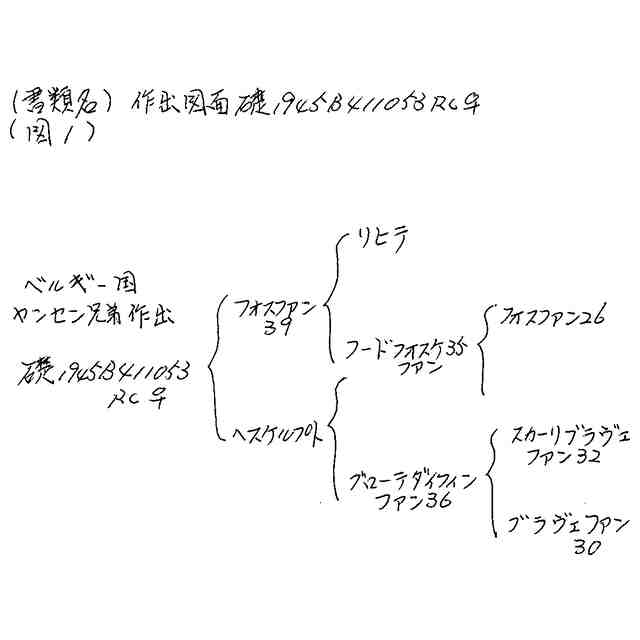 (書類名) 作出図面 礎1945B411053RC♀
(図1)
リヒテ
ベルギー国
ヤンセン兄弟作出
フォスファン
39
フォスファン26
フードフォスケ35
ファン
礎1945B411053
RC♀
ヘスケルプト
スカーリブラヴェ
ファン32
ブローテダイフィン
ファン36
ブラヴェファン
30